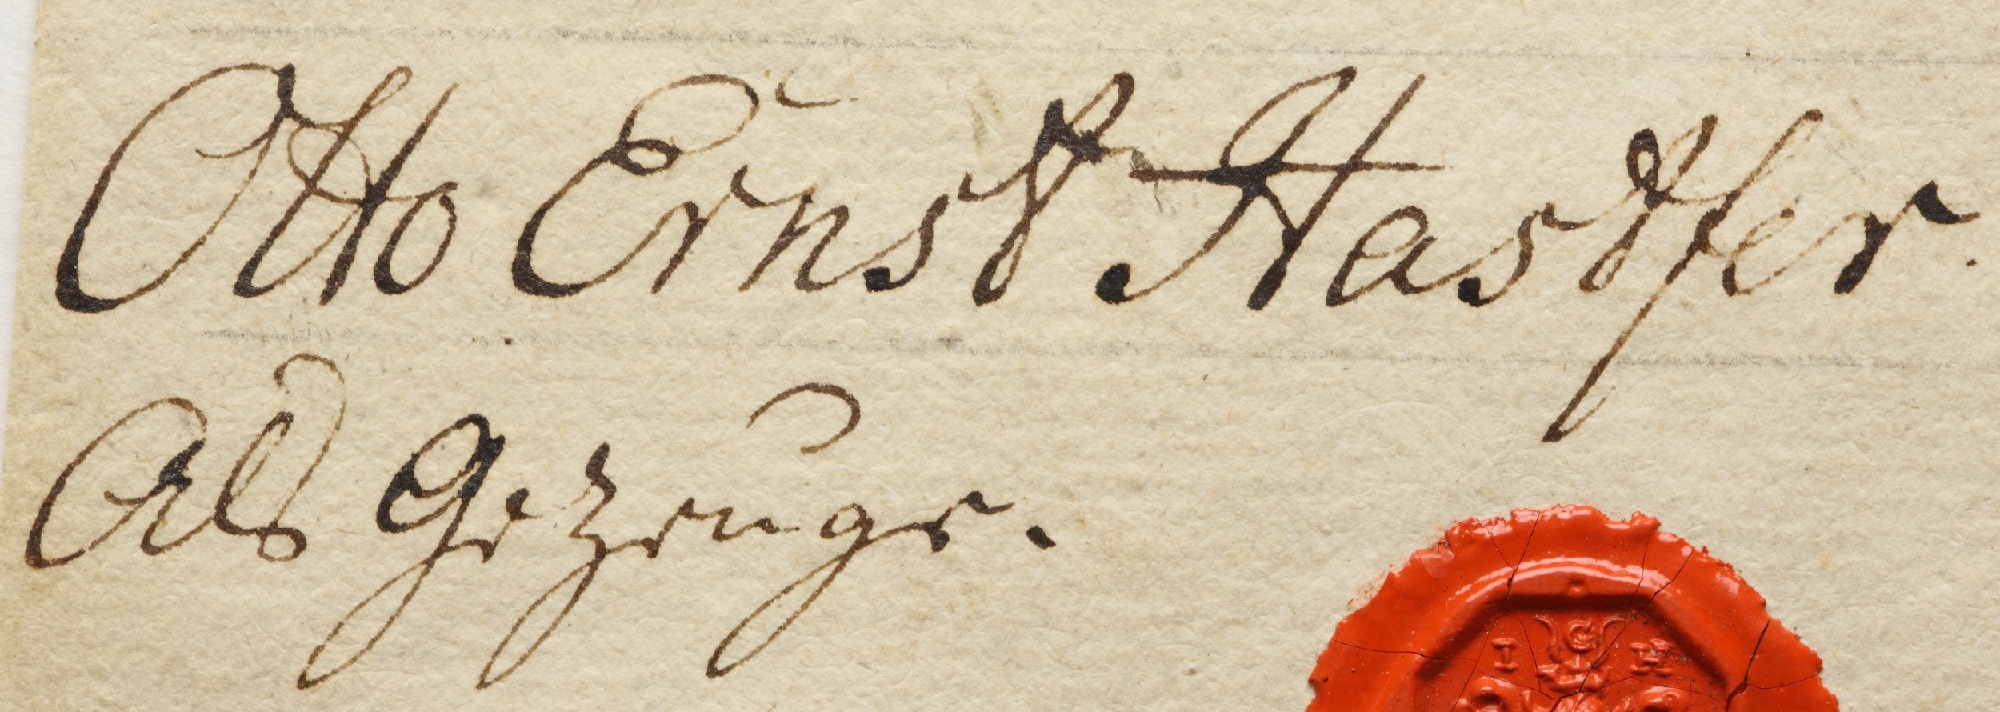 Otto Ernst Hastfer.
Als Gezeuge.
I H